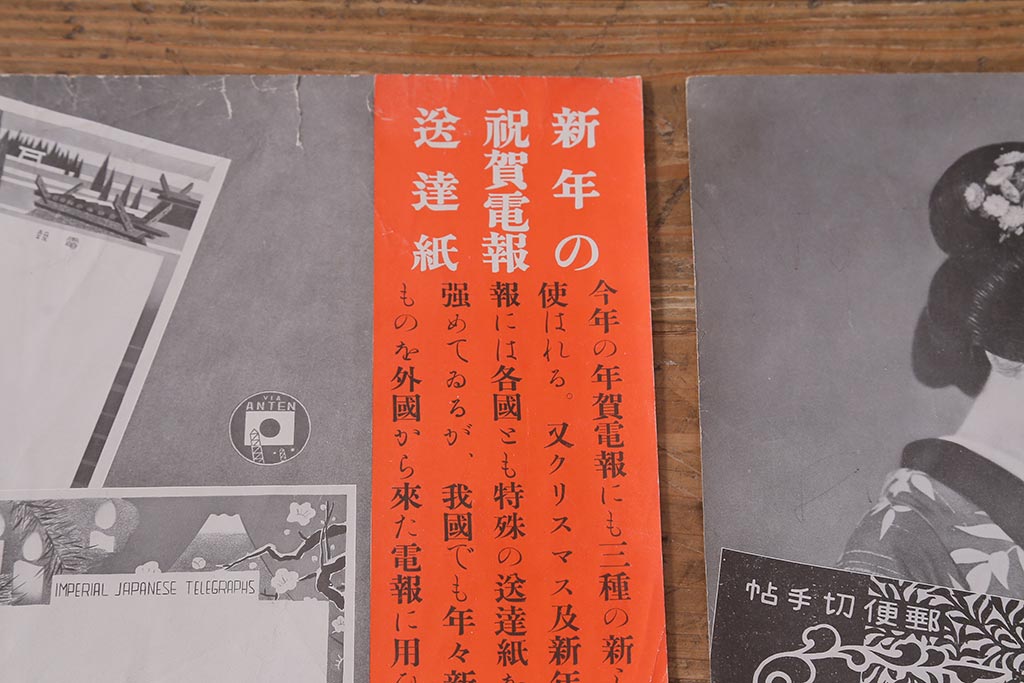 新年の
祝賀電報
送達紙
今年の年賀電報にも三種の新し
使はれる。又クリスマス及新年
報には各國とも特殊の送達紙を
强めてゐるが、我國でも年々新
ものを外國から來た電報に用ひ
電報
VIA
ANTEN
IMPERIAL JAPANESE TELEGRAPHS
郵便切手帖